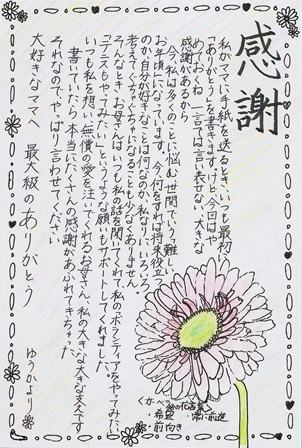 感謝
私がママに手紙を送るとき、いつも最初に
「ありがとう」を書きますけど、今回はや
めておくね。一言では言い表せない大きな
感謝があるから
今、私は多くのことに悩む、世間でいう、難しい
お年頃になっています。今、何をすれば将来役立つ
のか、自分が好きなことは何なのか、私なりにいろいろ
考えてぐちゃぐちゃになることも少なくありません。
そんなとき、お母さんはいつも私の話を聞いてくれて、私の「ボランティアをやってみたい」
「テニスもやってみたい」というような願いもサポートしてくれました。
いつも私を想い、無償の愛を注いでくれるお母さん、私の大きな大きな支えです
書いていたら、本当にたくさんの感謝があふれてきちゃった。
それなので、やっぱり言わせてください
大好きなママへ 最大級のありがとう
ゆうかより
くガーベラの花言葉
・希望 ・常に前進
・前向き